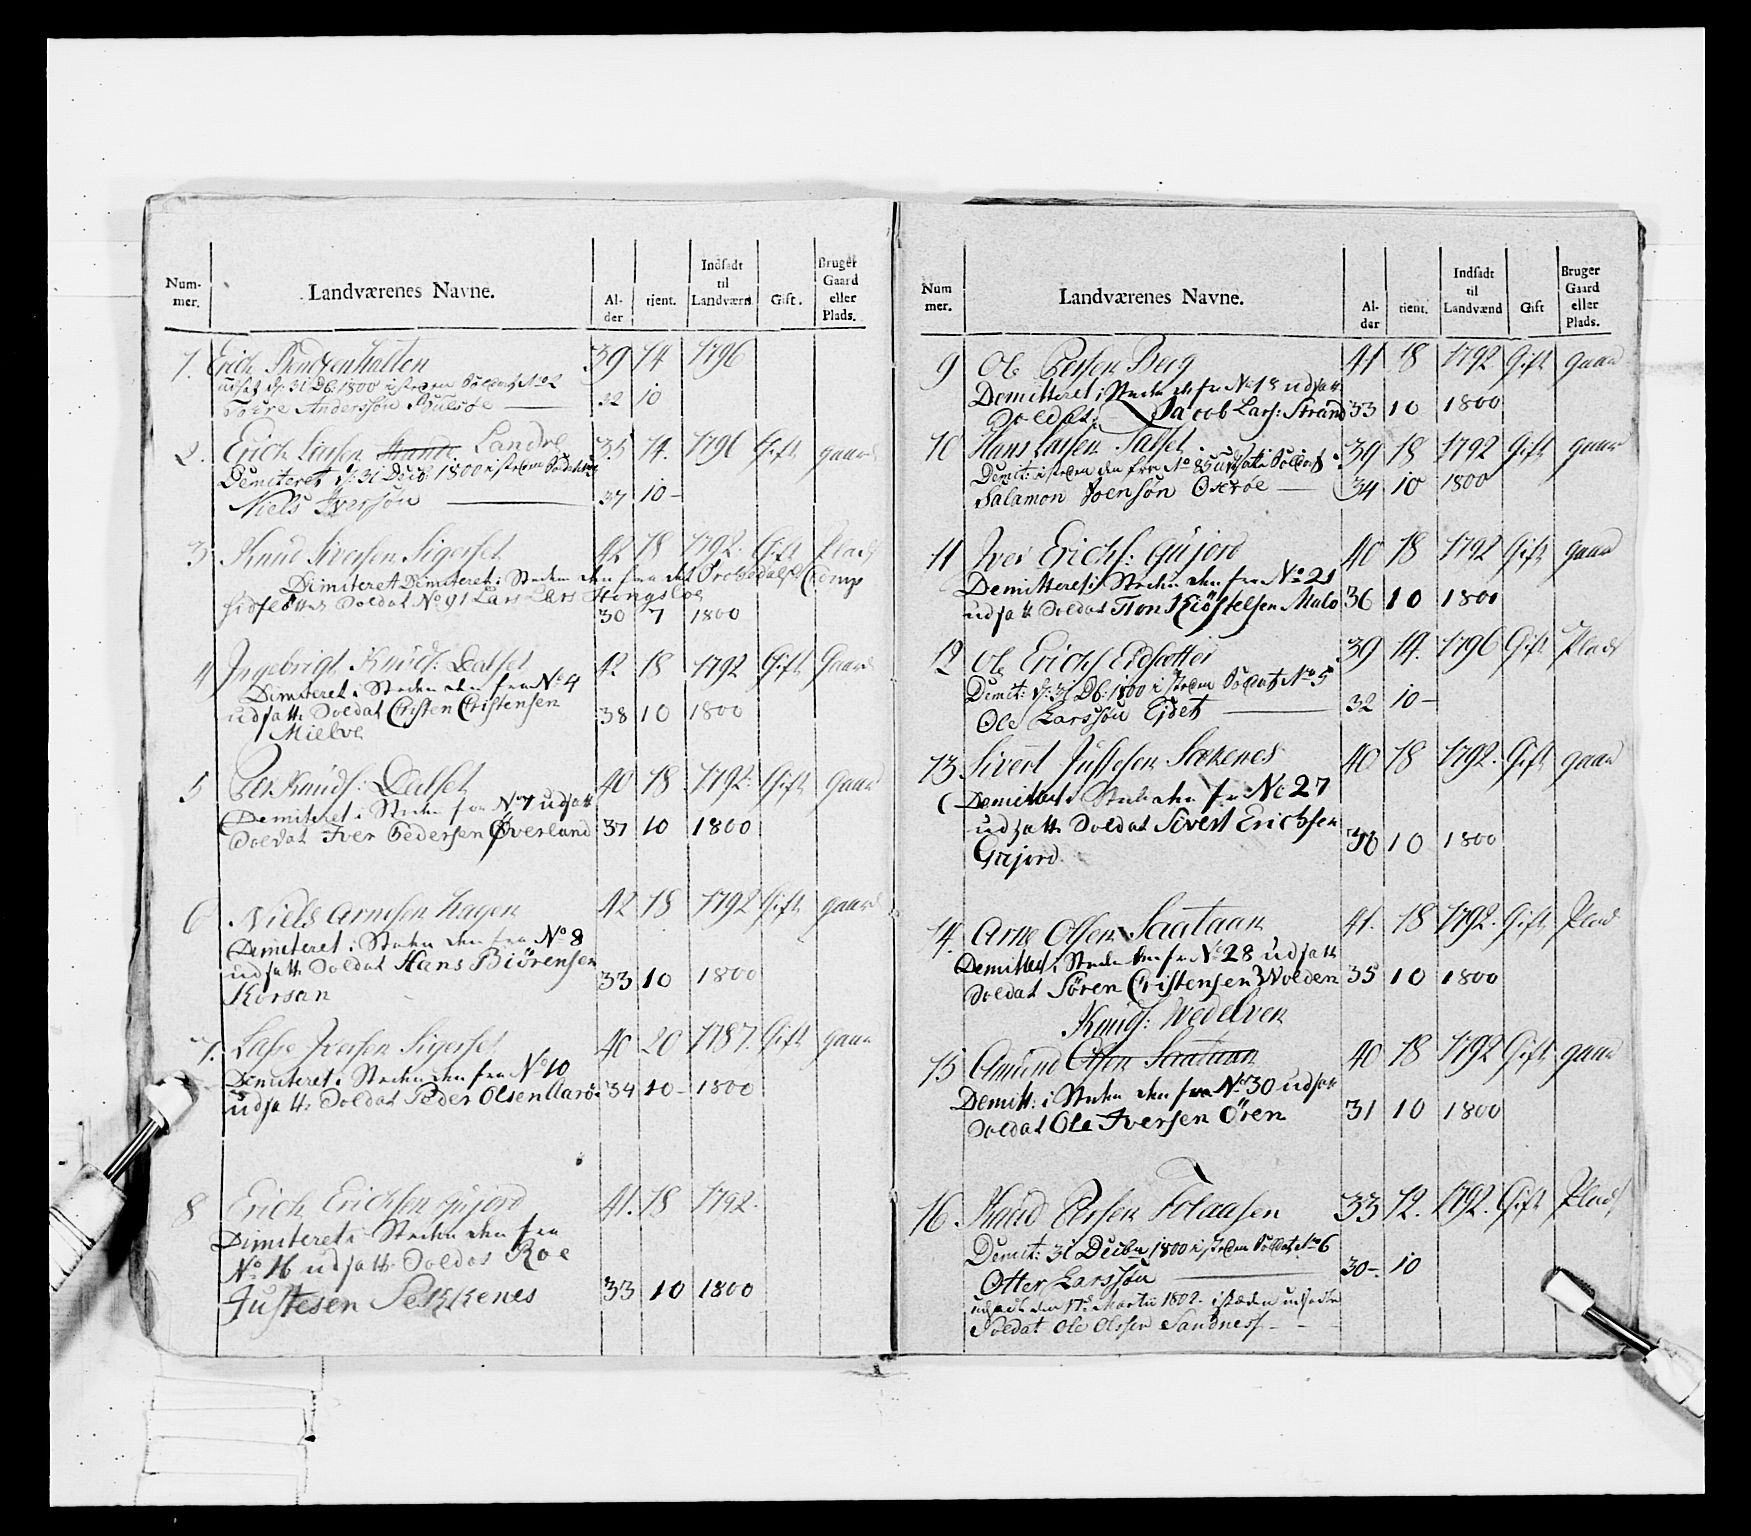 Num-
mer.
Landværenes Navne.
Al-
der
tient.
Indsadt
til
Landværn.
Gift.
Bruger
Gaard
eller
Plads.
1. Erich Knudsen 39 14 1796
31 Db. 1800 Soldat No 2
Tore Anderssøn 32 10
2. Erich Larsen Landre 35 14. 1796 Gift gaard
Demiteret d. 31 Decb. 1800
Niels Iverssøn 37 10 -
3 Knud Iversen Sigerset 42 18 1792. Gift Plads
Demiteret Demiteret i Steden den fra det Comp
Soldat No 91 Lars Lars
30 7 1800
4 Ingebrigt Knuds: Dalset 42 18 1792 Gift Gaard
Demiteret i Steden den fra No 4
udsatte Soldat Cristen Cristensen 38 10 1800
Mielve
5 Per Knuds: Dalset 40 18 1792. Gift Gaard
Demitteret i Steden fra No 7 udsatt
Soldat Iver Pedersen Øverland 37 10 1800
6 Niels Arnesen Hagen 42 18 1792 Gift gaard
Demiteret i Steden den fra No 8
udsatte Soldat Hans Biörensen 33 10 1800
Korsan
7. Lasse Iversen Sigerset 40 20 1787. Gift gaard
Demiteret i Steden den fra No 10
udsatte Soldat Peder Olsen 34 10 - 1800
8 Erich Erichsen Gujord 41. 18 1792.
Dimiteret i Steden den fra
No 16 udsatte Soldat Roe
Justesen Sekkenes 33 10 1800
Num
mer.
Landværenes Navne.
Al-
der
tient.
Indsadt
til
Landværnd
Gift
Bruger
Gaard
eller
Plads.
9 Ole Persen Berg 41 18 1792 Gift gaard
Demitteret i Steden den fra No 18 udsatt
Soldat: Jacob Lars: Strand 33 10 1800
10 Hans Larsen Talset 39 18 1792 Gift gaard
Demit: i steden den fra No 85 udsatte Soldat
Salamon Joensøn Oterøe 34 10 1800
11 Iver Erichs: Gujord 40 18 1792 Gift gaard
Demitteret i Steden den fra No 21
udsatte Soldat Tron Kiöstelsen Malo 36 10 1800
12 Ole Erichs Eidsetter 39 14. 1796 Gift Plads
Demit: d. 31 Db. 1800 i steden Soldat No 5
Ole Larssøn Ejdet 32 10 -
13 Sivert Justesen Sækenes 40 18 1792. Gift gaard
Demitteret i Steden den fra No 27
udsatte Soldat Sivert Erichsen
Gujord 30 10 1800
14. Arne Olsen Saataan 41. 18 1792. Gift Plads
Demitteret i Steden den fra No 28 udsatte
Soldat Sören Cristensen Wolden 35 10 1800
Knuds: Wedelven
15 Amund Olsen Saataan 40 18 1792 Gift gaard
Demitt: i Steden den fra No 30 udsatte
Soldat Ole Iversen Ören 31 10 1800
16 Knud Persen Tolaasen 33 12. 1792. Gift Plads
Demit: 31 Decbr 1800 i steden Soldat No 6
Otter Larssøn 30 -. 10
udsadt den 17d Martii 1802. isteden indsadte
Soldat Ole Olsen Sandnes - - -